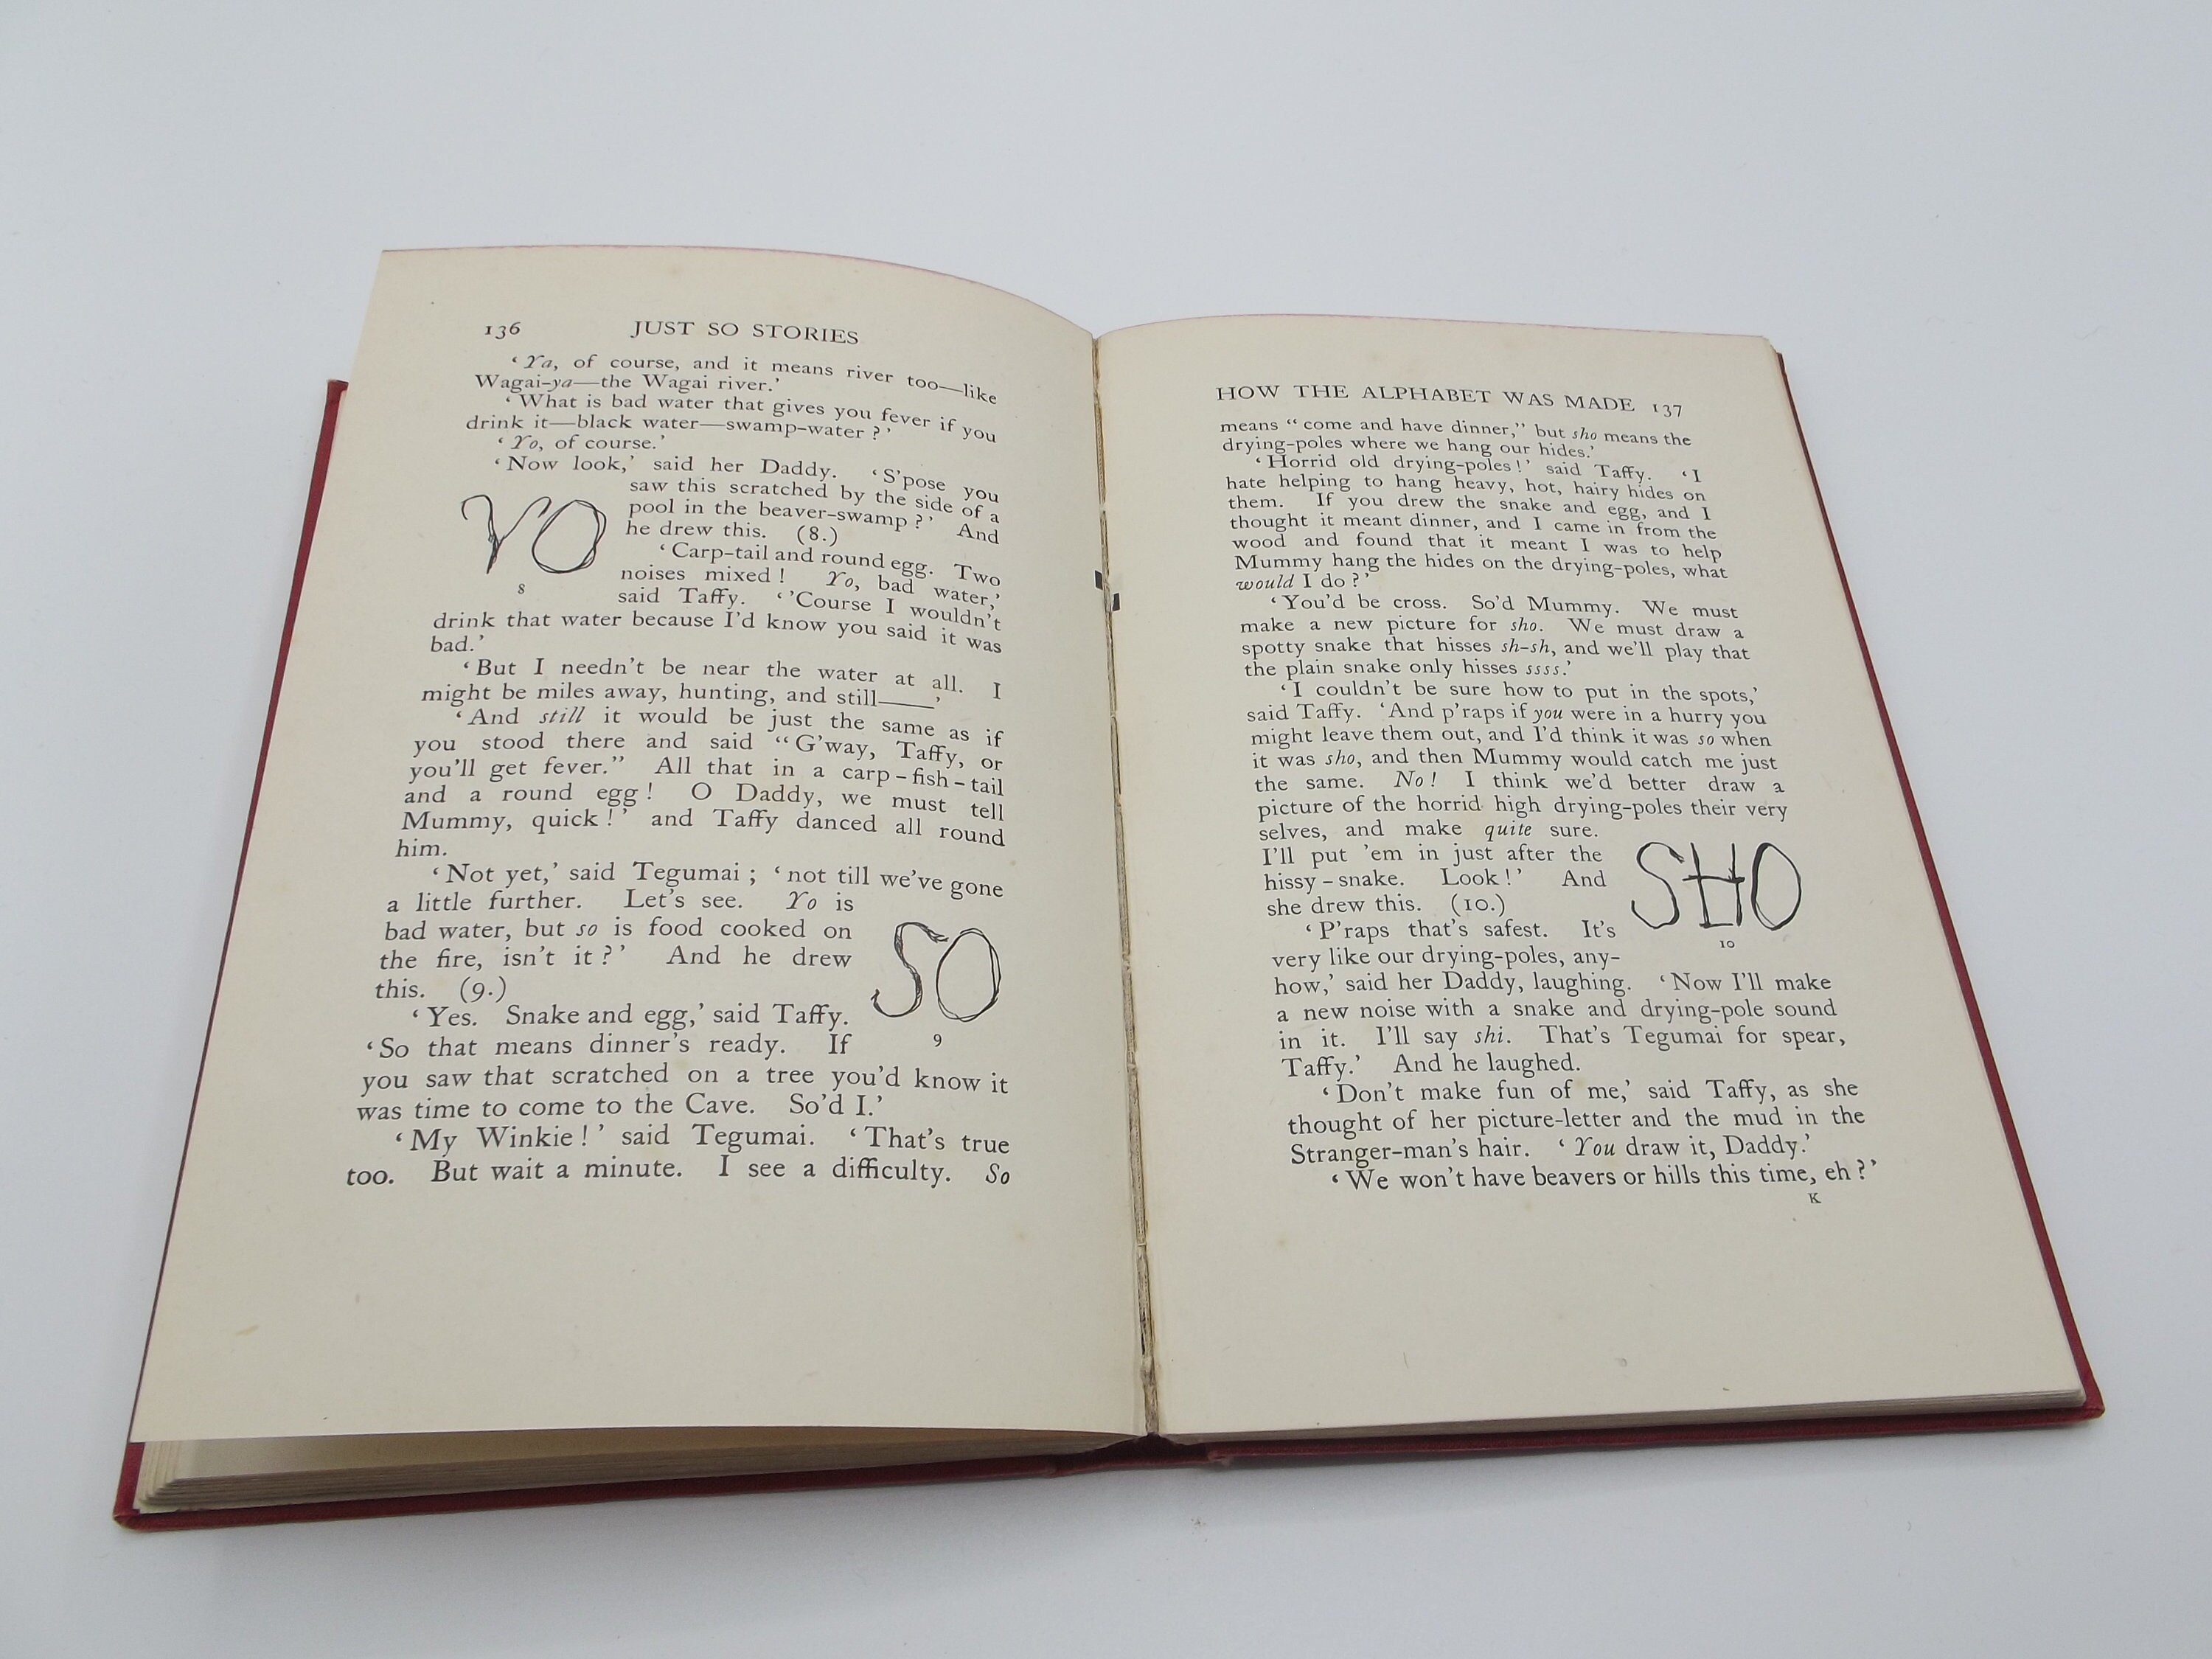 136 JUST SO STORIES
‘Ya, of course, and it means river too—like
Wagai-ya—the Wagai river.’
‘What is bad water that gives you fever if you
drink it—black water—swamp-water?’
‘Yo, of course.’
‘Now look,’ said her Daddy. ‘S’pose you
saw this scratched by the side of a
pool in the beaver-swamp?’ And
he drew this. (8.)
YO
8
‘Carp-tail and round egg. Two
noises mixed! Yo, bad water,’
said Taffy. ‘’Course I wouldn’t
drink that water because I’d know you said it was
bad.’
‘But I needn’t be near the water at all. I
might be miles away, hunting, and still——’
‘And still it would be just the same as if
you stood there and said “G’way, Taffy, or
you’ll get fever.” All that in a carp-fish-tail
and a round egg! O Daddy, we must tell
Mummy, quick!’ and Taffy danced all round
him.
‘Not yet,’ said Tegumai; ‘not till we’ve gone
a little further. Let’s see. Yo is
bad water, but so is food cooked on
the fire, isn’t it?’ And he drew
this. (9.)
SO
9
‘Yes. Snake and egg,’ said Taffy.
‘So that means dinner’s ready. If
you saw that scratched on a tree you’d know it
was time to come to the Cave. So’d I.’
‘My Winkie!’ said Tegumai. ‘That’s true
too. But wait a minute. I see a difficulty. So
HOW THE ALPHABET WAS MADE 137
means “come and have dinner,” but sho means the
drying-poles where we hang our hides.’
‘Horrid old drying-poles!’ said Taffy. ‘I
hate helping to hang heavy, hot, hairy hides on
them. If you drew the snake and egg, and I
thought it meant dinner, and I came in from the
wood and found that it meant I was to help
Mummy hang the hides on the drying-poles, what
would I do?’
‘You’d be cross. So’d Mummy. We must
make a new picture for sho. We must draw a
spotty snake that hisses sh-sh, and we’ll play that
the plain snake only hisses ssss.’
‘I couldn’t be sure how to put in the spots,’
said Taffy. ‘And p’raps if you were in a hurry you
might leave them out, and I’d think it was so when
it was sho, and then Mummy would catch me just
the same. No! I think we’d better draw a
picture of the horrid high drying-poles their very
selves, and make quite sure.
I’ll put ’em in just after the
hissy-snake. Look!’ And
she drew this. (10.)
SHO
10
‘P’raps that’s safest. It’s
very like our drying-poles, any-
how,’ said her Daddy, laughing. ‘Now I’ll make
a new noise with a snake and drying-pole sound
in it. I’ll say shi. That’s Tegumai for spear,
Taffy.’ And he laughed.
‘Don’t make fun of me,’ said Taffy, as she
thought of her picture-letter and the mud in the
Stranger-man’s hair. ‘You draw it, Daddy.’
‘We won’t have beavers or hills this time, eh?’
K